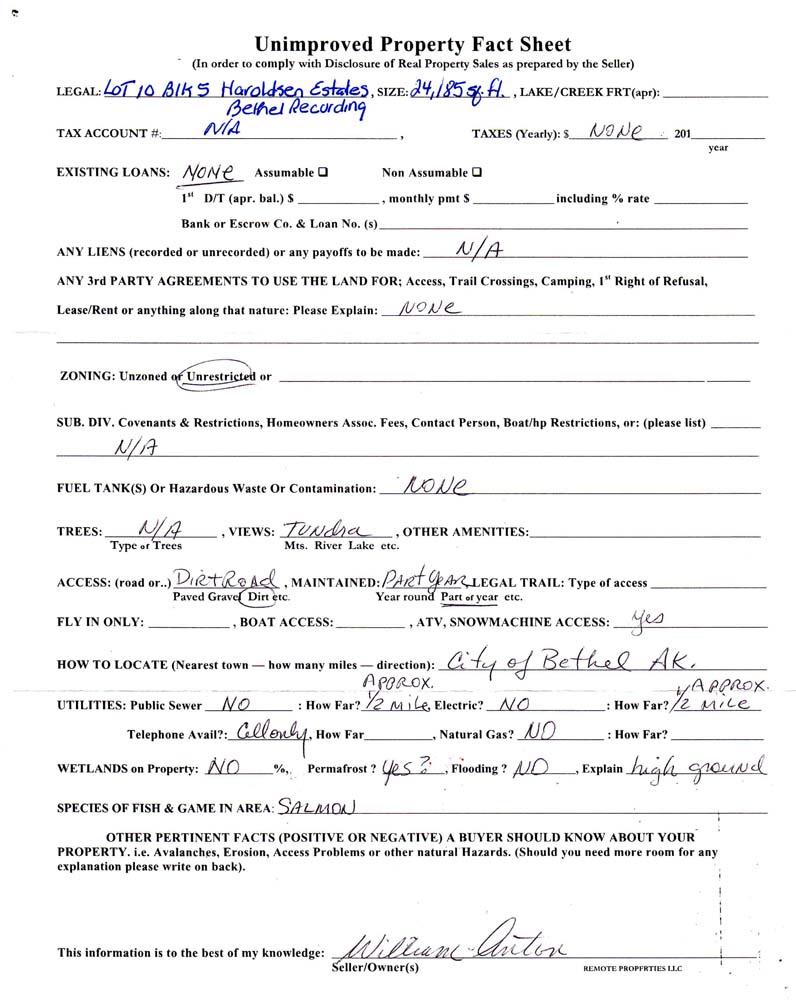 Unimproved Property Fact Sheet
(In order to comply with Disclosure of Real Property Sales as prepared by the Seller)
LEGAL: LOT 10 Blk 5 Haroldsen Estates, SIZE: 24,185 sq. ft. , LAKE/CREEK FRT(apr):
Bethel Recording
TAX ACCOUNT #: N/A , TAXES (Yearly): $ NONE 201
year
EXISTING LOANS: NONE Assumable ☐ Non Assumable ☐
1st D/T (apr. bal.) $ , monthly pmt $ including % rate
Bank or Escrow Co. & Loan No. (s)
ANY LIENS (recorded or unrecorded) or any payoffs to be made: N/A
ANY 3rd PARTY AGREEMENTS TO USE THE LAND FOR; Access, Trail Crossings, Camping, 1st Right of Refusal,
Lease/Rent or anything along that nature: Please Explain: NONE
ZONING: Unzoned or Unrestricted or
SUB. DIV. Covenants & Restrictions, Homeowners Assoc. Fees, Contact Person, Boat/hp Restrictions, or: (please list)
N/A
FUEL TANK(S) Or Hazardous Waste Or Contamination: NONE
TREES: N/A , VIEWS: Tundra , OTHER AMENITIES:
Type or Trees Mts. River Lake etc.
ACCESS: (road or..) Dirt Road , MAINTAINED: Part Year LEGAL TRAIL: Type of access
Paved Gravel Dirt etc. Year round Part or year etc.
FLY IN ONLY: , BOAT ACCESS: , ATV, SNOWMACHINE ACCESS: Yes
HOW TO LOCATE (Nearest town — how many miles — direction): City of Bethel AK.
APPROX. APPROX.
UTILITIES: Public Sewer NO : How Far? 1/2 Mile, Electric? NO : How Far? 1/2 Mile
Telephone Avail?: Cell only, How Far , Natural Gas? NO : How Far?
WETLANDS on Property: NO %, Permafrost ? Yes? , Flooding ? NO , Explain high ground
SPECIES OF FISH & GAME IN AREA: SALMON
OTHER PERTINENT FACTS (POSITIVE OR NEGATIVE) A BUYER SHOULD KNOW ABOUT YOUR
PROPERTY. i.e. Avalanches, Erosion, Access Problems or other natural Hazards. (Should you need more room for any
explanation please write on back).
This information is to the best of my knowledge: William Anton
Seller/Owner(s) REMOTE PROPERTIES LLC